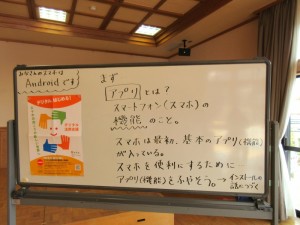 みなさんのスマホは
Androidです
まず
アプリとは?
スマートフォン(スマホ)の
機能のこと。
スマホは最初、基本のアプリ(機能)
が入っている。
スマホを便利にするために
アプリ(機能)をふやそう。→インストールの
話につづく
デジタル